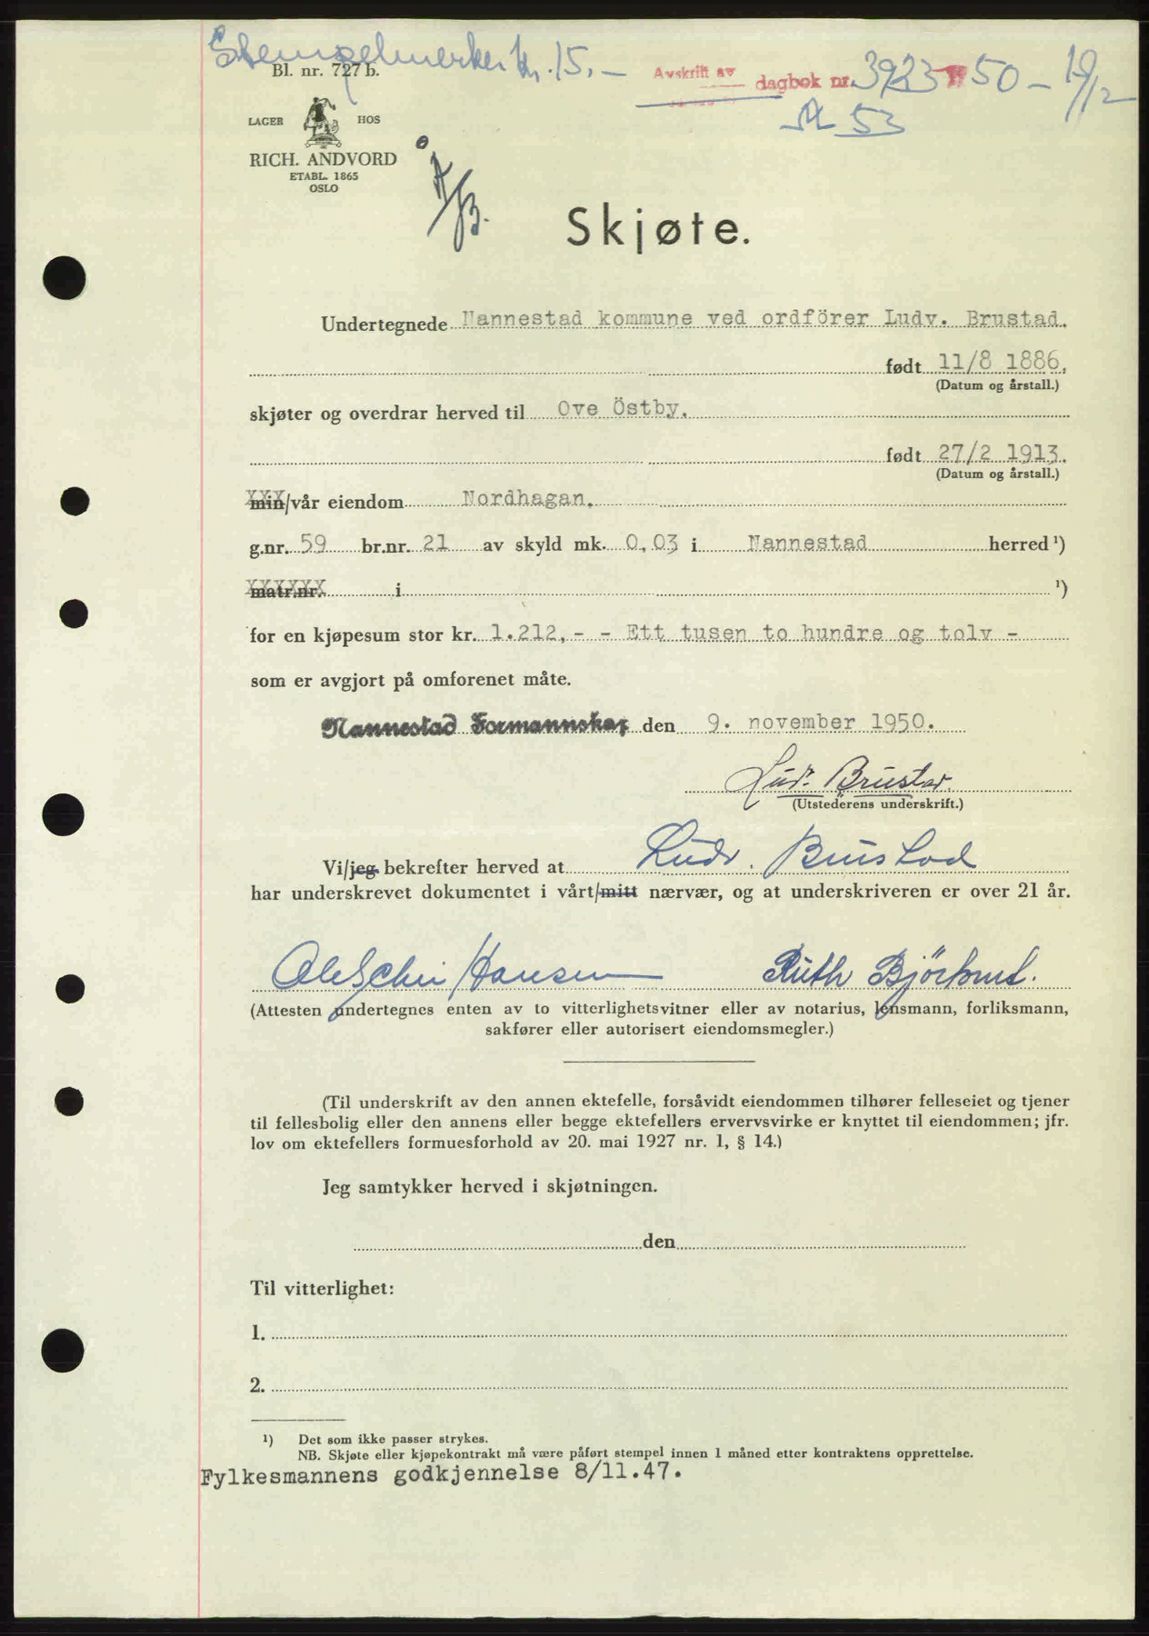 Stempelmerker kr. 15,-
Bl. nr. 727 b.
Avskrift av dagbok nr. 3923 50 - 19/12
53
LAGER HOS
RICH. ANDVORD
ETABL. 1865
OSLO
Å/B.
Skjøte.
Undertegnede Nannestad kommune ved ordförer Ludv. Brustad.
født 11/8 1886.
(Datum og årstall.)
skjøter og overdrar herved til Ove Östby.
født 27/2 1913.
(Datum og årstall.)
min/vår eiendom Nordhagan.
g.nr. 59 br.nr. 21 av skyld mk. 0,03 i Nannestad herred ¹)
matr.nr. i ¹)
for en kjøpesum stor kr. 1.212,- - Ett tusen to hundre og tolv -
som er avgjort på omforenet måte.
Nannestad Formannskap den 9. november 1950.
Ludv. Brustad.
(Utstederens underskrift.)
Vi/jeg bekrefter herved at Ludv. Brustad
har underskrevet dokumentet i vårt/mitt nærvær, og at underskriveren er over 21 år.
Hansen Ruth
(Attesten undertegnes enten av to vitterlighetsvitner eller av notarius, lensmann, forliksmann,
sakfører eller autorisert eiendomsmegler.)
(Til underskrift av den annen ektefelle, forsåvidt eiendommen tilhører felleseiet og tjener
til fellesbolig eller den annens eller begge ektefellers ervervsvirke er knyttet til eiendommen; jfr.
lov om ektefellers formuesforhold av 20. mai 1927 nr. 1, § 14.)
Jeg samtykker herved i skjøtningen.
den
Til vitterlighet:
1.
2.
¹) Det som ikke passer strykes.
NB. Skjøte eller kjøpekontrakt må være påført stempel innen 1 måned etter kontraktens opprettelse.
Fylkesmannens godkjennelse 8/11.47.